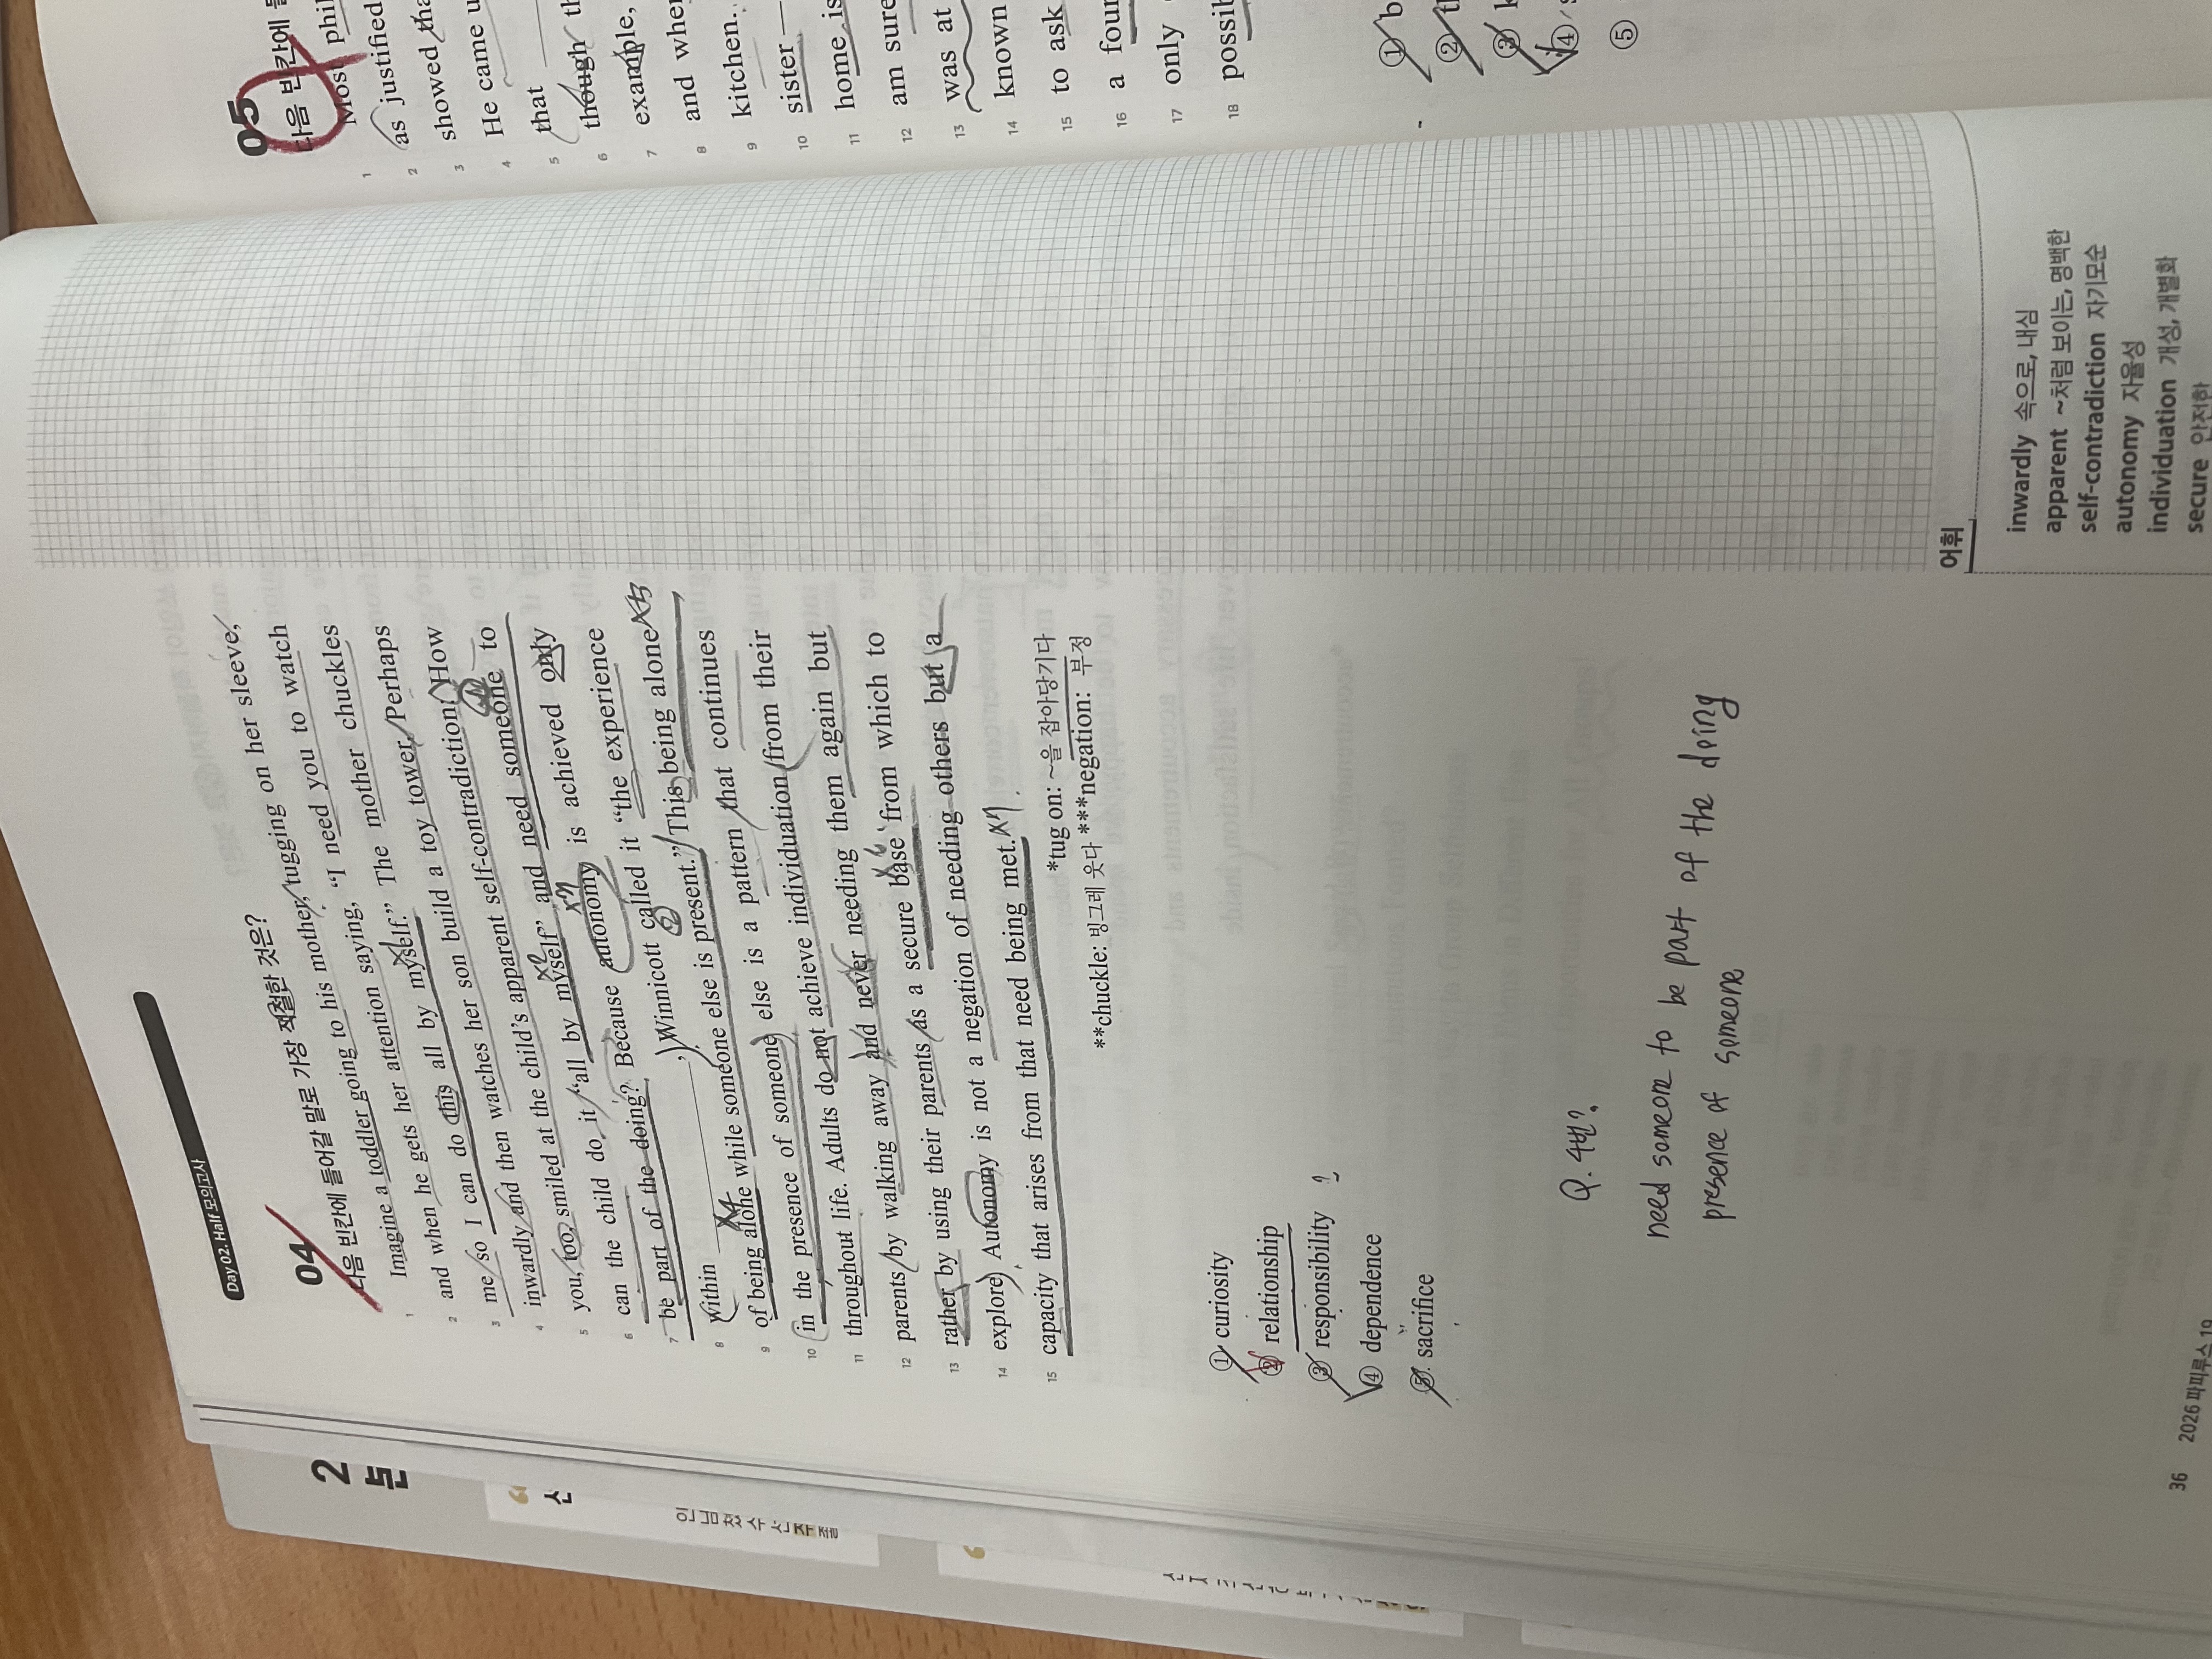 Day 02. Half 모의고사
04
다음 빈칸에 들어갈 말로 가장 적절한 것은?
1 Imagine a toddler going to his mother, tugging on her sleeve,
2 and when he gets her attention saying, “I need you to watch
3 me so I can do this all by myself.” The mother chuckles
4 inwardly and then watches her son build a toy tower. Perhaps
5 you, too, smiled at the child's apparent self-contradiction. How
6 can the child do it “all by myself” and need someone to
7 be part of the doing? Because autonomy is achieved only
8 within , Winnicott called it “the experience
9 of being alone while someone else is present.” This being alone
10 in the presence of someone else is a pattern that continues
11 throughout life. Adults do not achieve individuation from their
12 parents by walking away and never needing them again but
13 rather by using their parents as a secure base from which to
14 explore. Autonomy is not a negation of needing others but a
15 capacity that arises from that need being met.
*tug on: ~을 잡아당기다
**chuckle: 빙그레 웃다 ***negation: 부정
① curiosity
② relationship
③ responsibility ?
④ dependence
⑤ sacrifice
Q. 4번?
need someone to be part of the doing
presence of someone
어휘
inwardly 속으로, 내심
apparent ~처럼 보이는, 명백한
self-contradiction 자기모순
autonomy 자율성
individuation 개성, 개별화
secure 안전한
36 2026 파피루스 19
05
다음 빈칸에
1 Most phil
2 as justified
3 showed tha
4 He came u
5 that
6 though th
7 example,
8 and when
9 kitchen.
10 sister
11 home is
12 am sure
13 was at
14 known
15 to ask
16 a four
17 only
18 possib
① b
② t
③ k
④
⑤
2